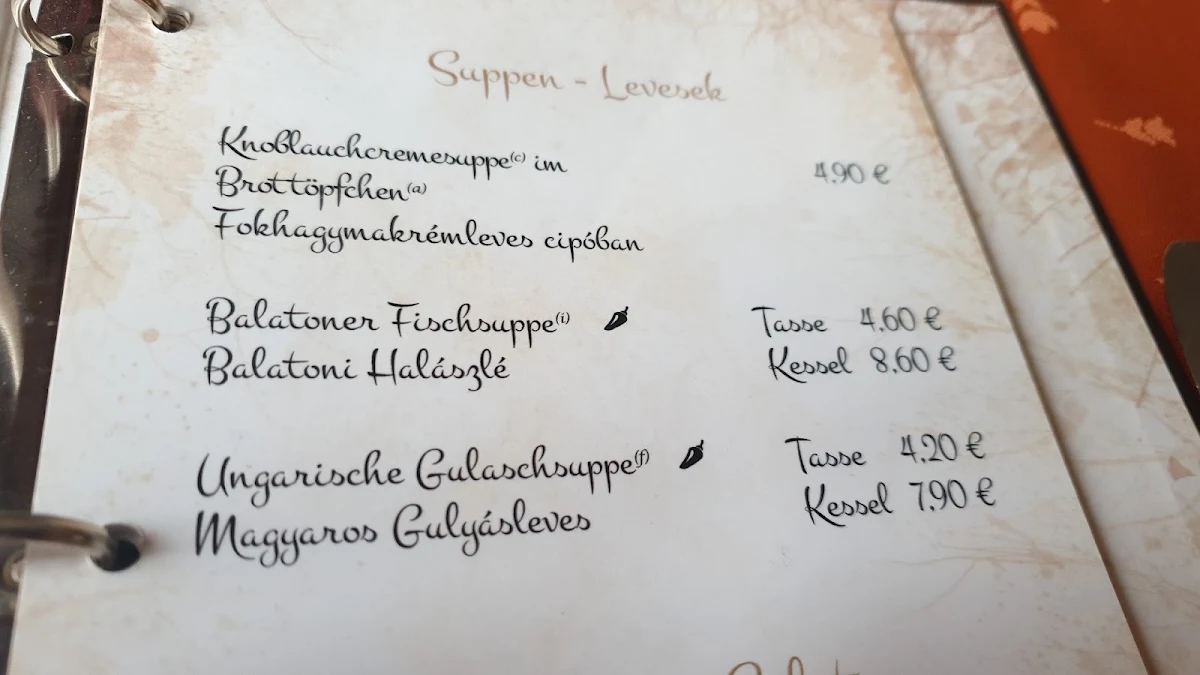 Suppen - Levesek
Knoblauchcremesuppe(c) im
Brottöpfchen(a)
4,90 €
Fokhagymakrémleves cipóban
Balatoner Fischsuppe(i) Tasse 4,60 €
Balatoni Halászlé Kessel 8,60 €
Ungarische Gulaschsuppe(f) Tasse 4,20 €
Magyaros Gulyásleves Kessel 7,90 €